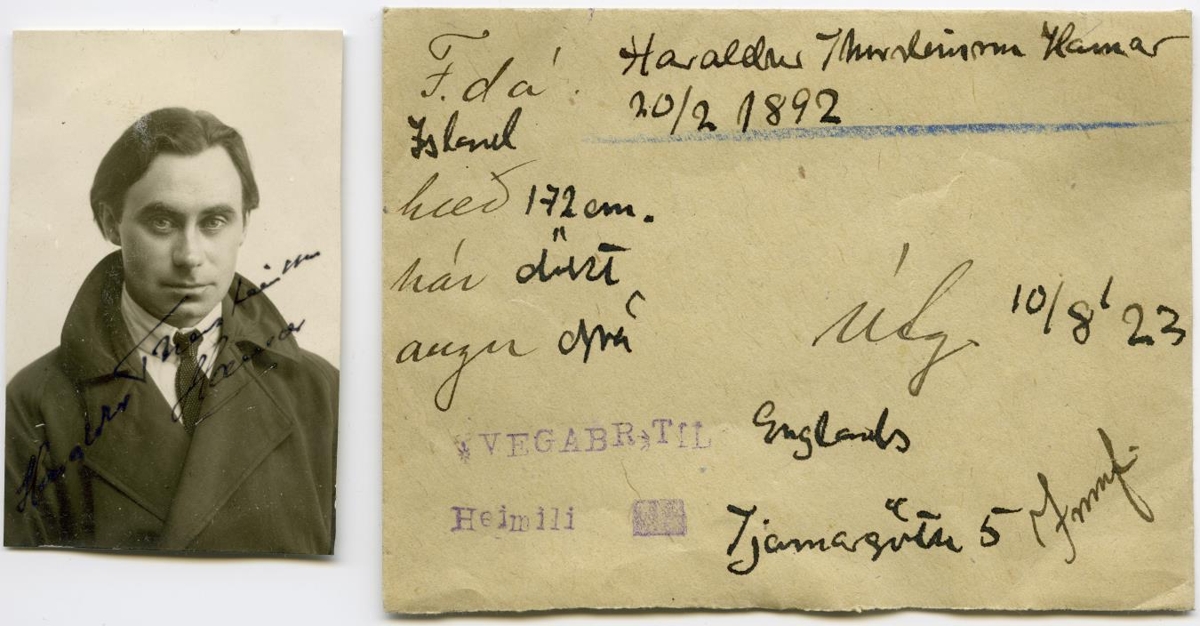 Haraldur Thorsteinsson
Hamar
Haraldur Thorsteinsson Hamar
F. dá. 20/2 1892
Island
hæð 172 cm.
hár dökt
augu grá
útg. 10/8 '23
VEGABR. TIL Englands
Heimili Tjarnargötu 5